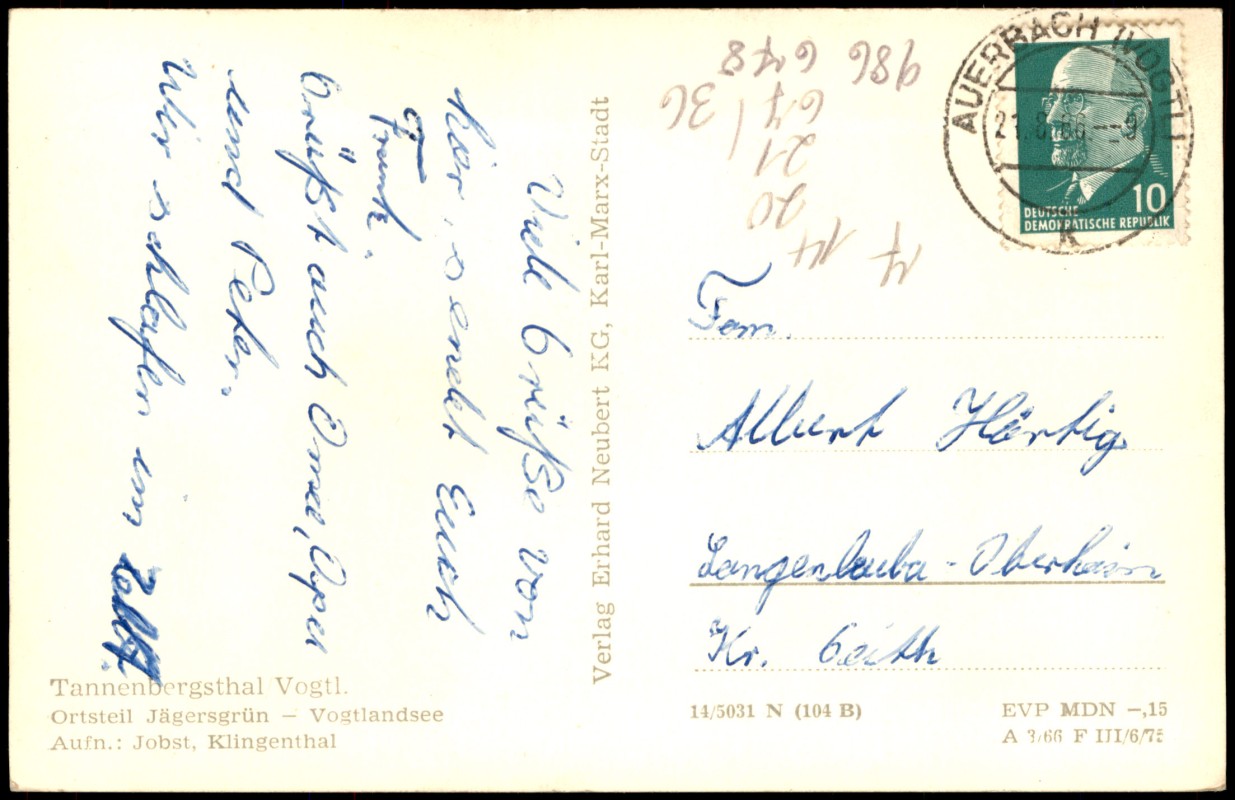 Viele Grüße von
hier, sendet Euch
Frank.
Grüßt auch Oma, Opa
und Peter.
Wir schlafen im Zelt.
Tannenbergsthal Vogtl.
Ortsteil Jägersgrün – Vogtlandsee
Aufn.: Jobst, Klingenthal
Verlag Erhard Neubert KG, Karl-Marx-Stadt
986 678
67/36
21
20
14
14
AUERBACH (VOGTL)
K
10
DEUTSCHE
DEMOKRATISCHE REPUBLIK
Fam.
Albert Härtig
Langenleuba-Oberhain
Kr. Geith
14/5031 N (104 B)
EVP MDN –,15
A 3/66 F III/6/75